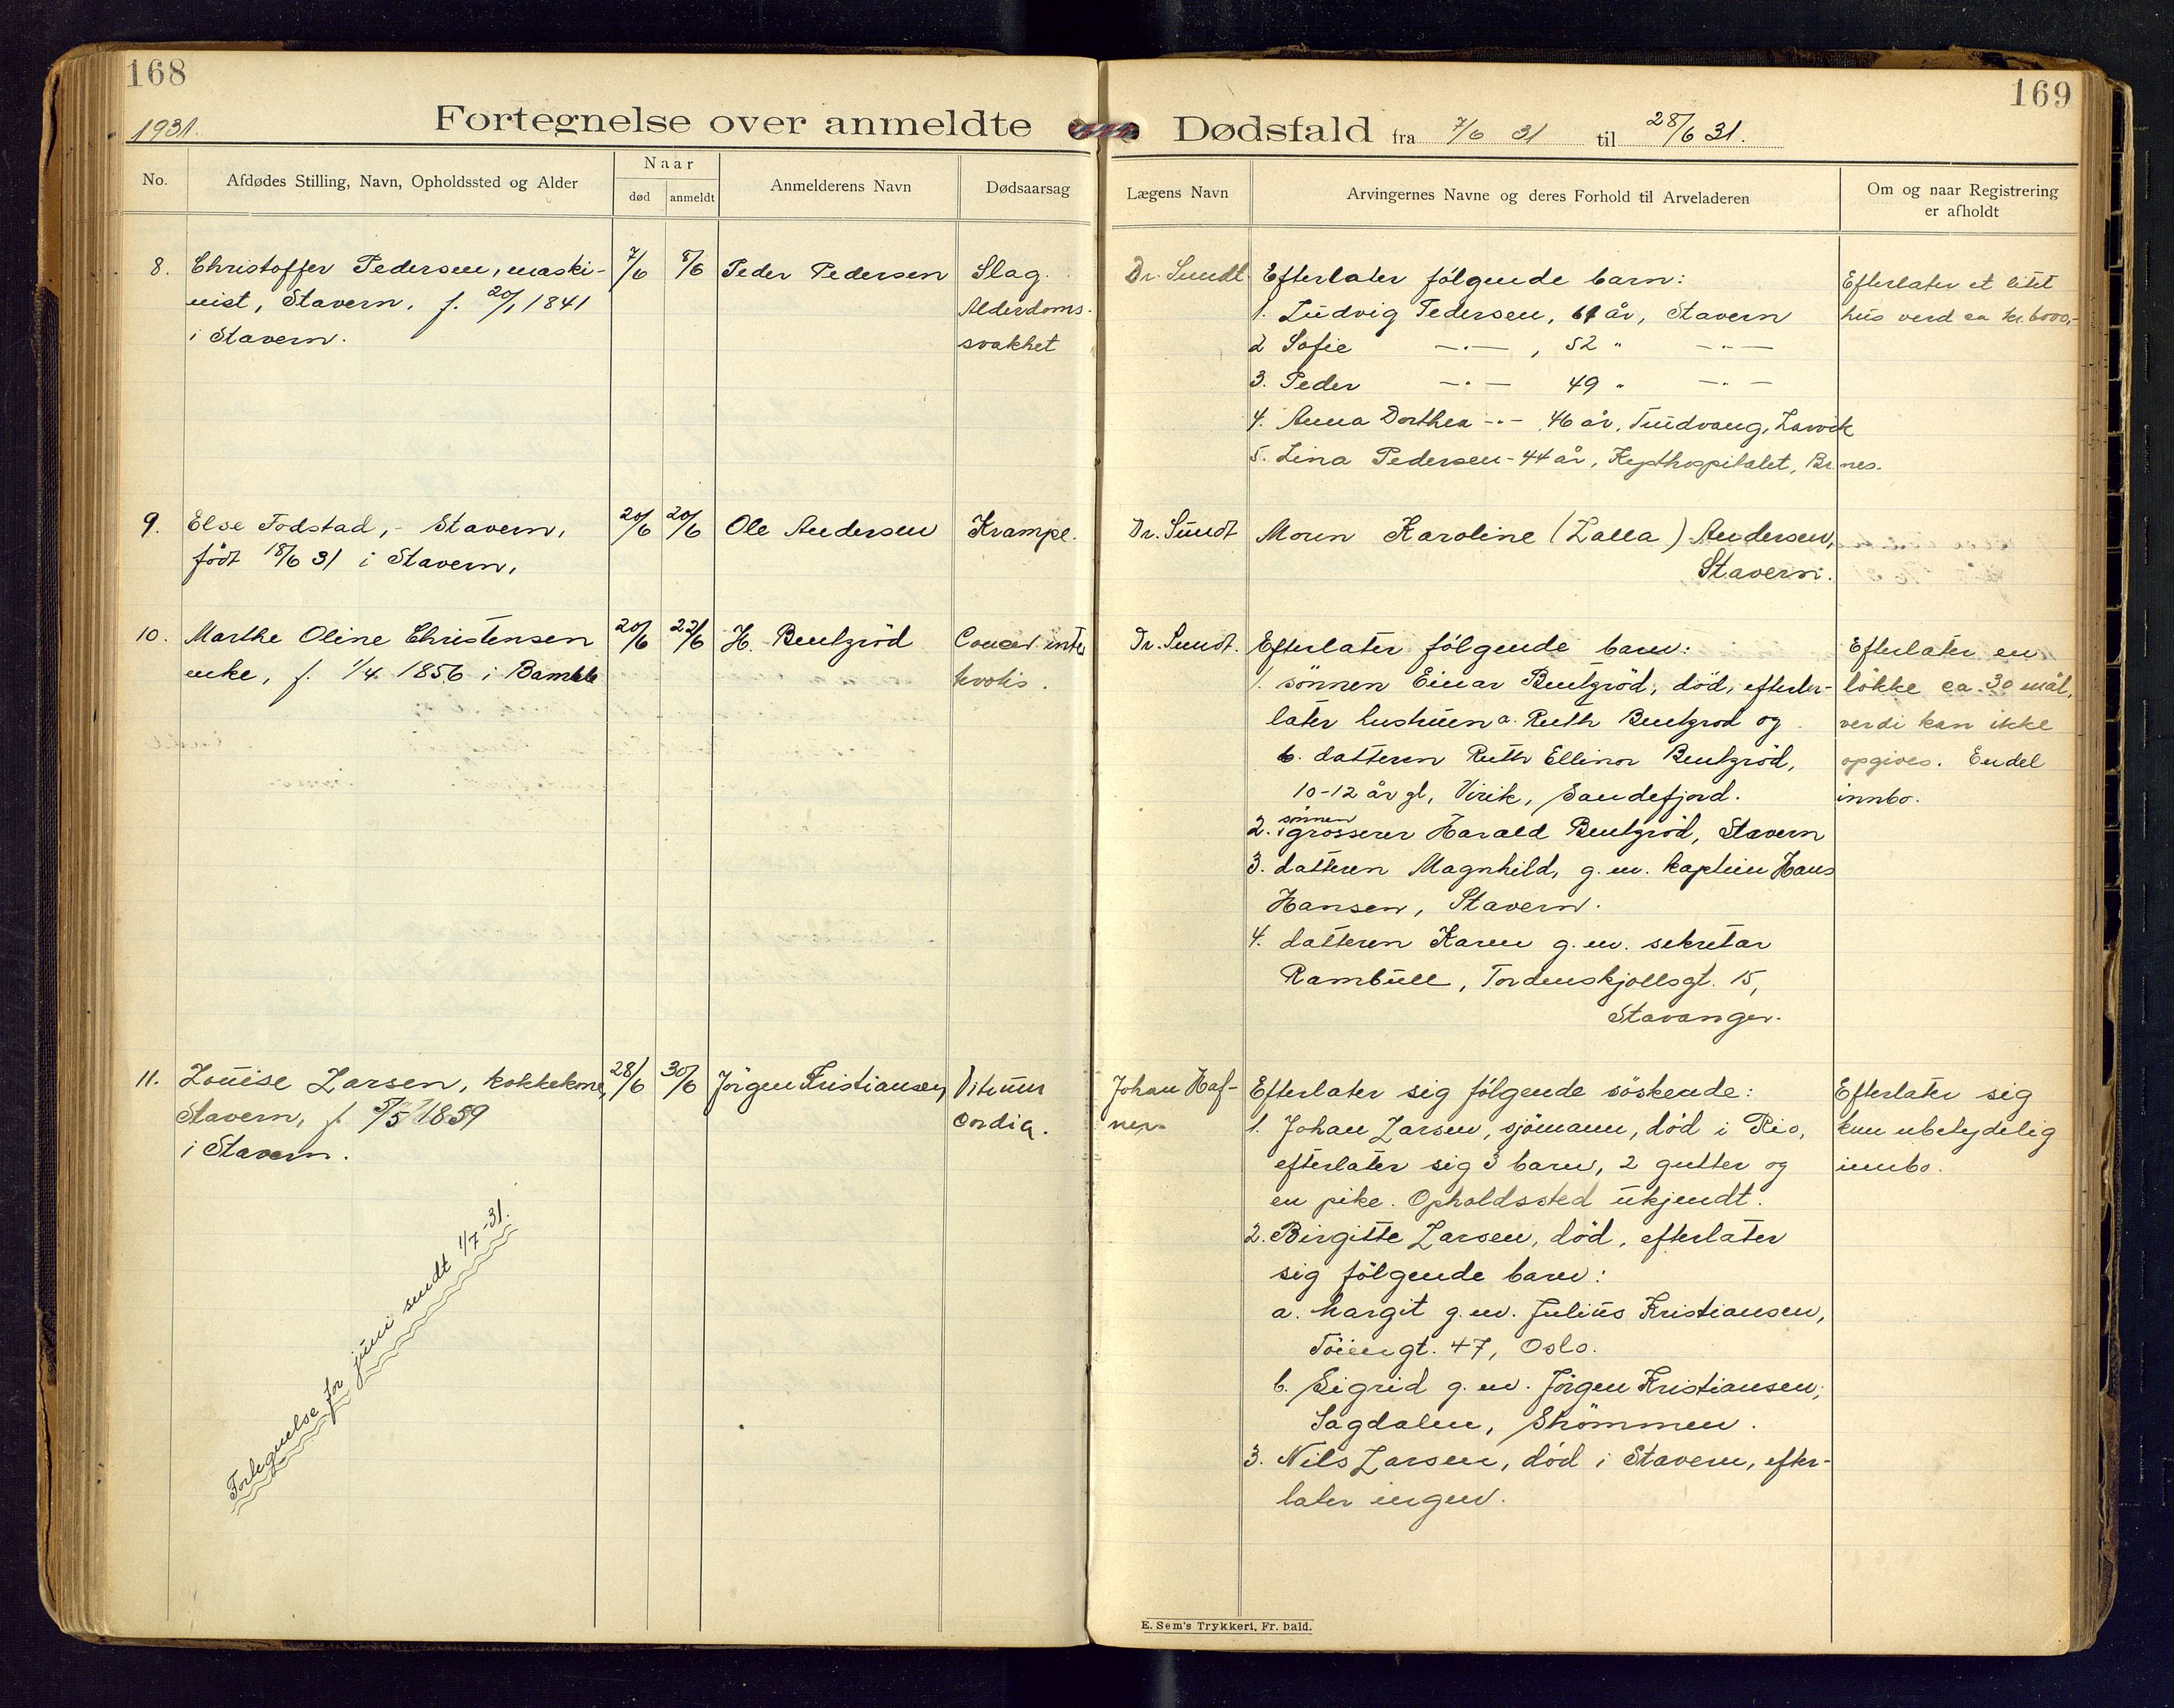 168
1931.
Fortegnelse over anmeldte
No.
Afdødes Stilling, Navn, Opholdssted og Alder
Naar
død
anmeldt
Anmelderens Navn
Dødsaarsag
8.
Christoffer Pedersen, maski-
nist, Stavern. f. 20/1 1841
i Stavern.
7/6
8/6
Peder Pedersen
Slag.
Alderdoms-
svakhet
9.
Else Fodstad, - Stavern,
født 18/6 31 i Stavern,
20/6
20/6
Ole Andersen
Krampe.
10.
Marthe Oline Christensen
enke, f. 1/4 1856 i Bamble
20/6
22/6
H. Bentzrød
Cancer
11.
Louise Larsen, kokkekone,
Stavern, f. 5/5 1859
i Stavern.
28/6
30/6
Jörgen Kristiansen
Vitium
cordia.
Fortegnelse for juni sendt 1/7-31.
169
Dødsfald fra 7/6 31 til 28/6 31.
Lægens Navn
Arvingernes Navne og deres Forhold til Arveladeren
Om og naar Registrering
er afholdt
Dr. Sundt
Efterlater følgende barn:
1. Ludvig Pedersen, 61 år, Stavern
2 Sofie —·— , 52 " —·—
3. Peder —·— 49 " —·—
4. Anna Dorthea -·- 46 år, Larvik
5. Lina Pedersen - 44 år,
Efterlater et litet
hus verd ca kr. 6000,-
Dr. Sundt
Moren Karoline (Lalla) Andersen,
Stavern.
Dr. Sundt.
Efterlater følgende barn:
1. sönnen Einar Bentzröd, död, efterla-
later hustruen a. Ruth Bentzrod og
b. datteren Ruth Ellinor Bentzröd,
10-12 år gl, Virik, Sandefjord.
sönnen
2. grosserer Harald Bentzröd, Stavern
3. datteren Magnhild, g.m. kaptein Hans
Hansen, Stavern.
4. datteren Karen g.m. sekretar
Rambüll, Tordenskjollsgt. 15,
Stavanger.
Efterlater en
lökke ca. 30 mål,
verdi kan ikke
opgives. Endel
innbo.
Johan Haf-
ner.
Efterlater sig følgende söskende:
1. Johan Larsen, sjömann, död i Rio,
efterlater sig 3 barn, 2 gutter og
en pike. Opholdssted ukjendt.
2. Birgitte Larsen, död, efterlater
sig følgende barn:
a. Margit g.m. Julius Kristiansen,
Töiengt. 47, Oslo.
b. Sigrid g.m. Jörgen Kristiansen,
Sagdalen, Strömmen.
3. Nils Larsen, död i Stavern, efter-
later ingen.
Efterlater sig
kun ubetydelig
innbo.
E. Sem's Trykkeri, Fr. hald.